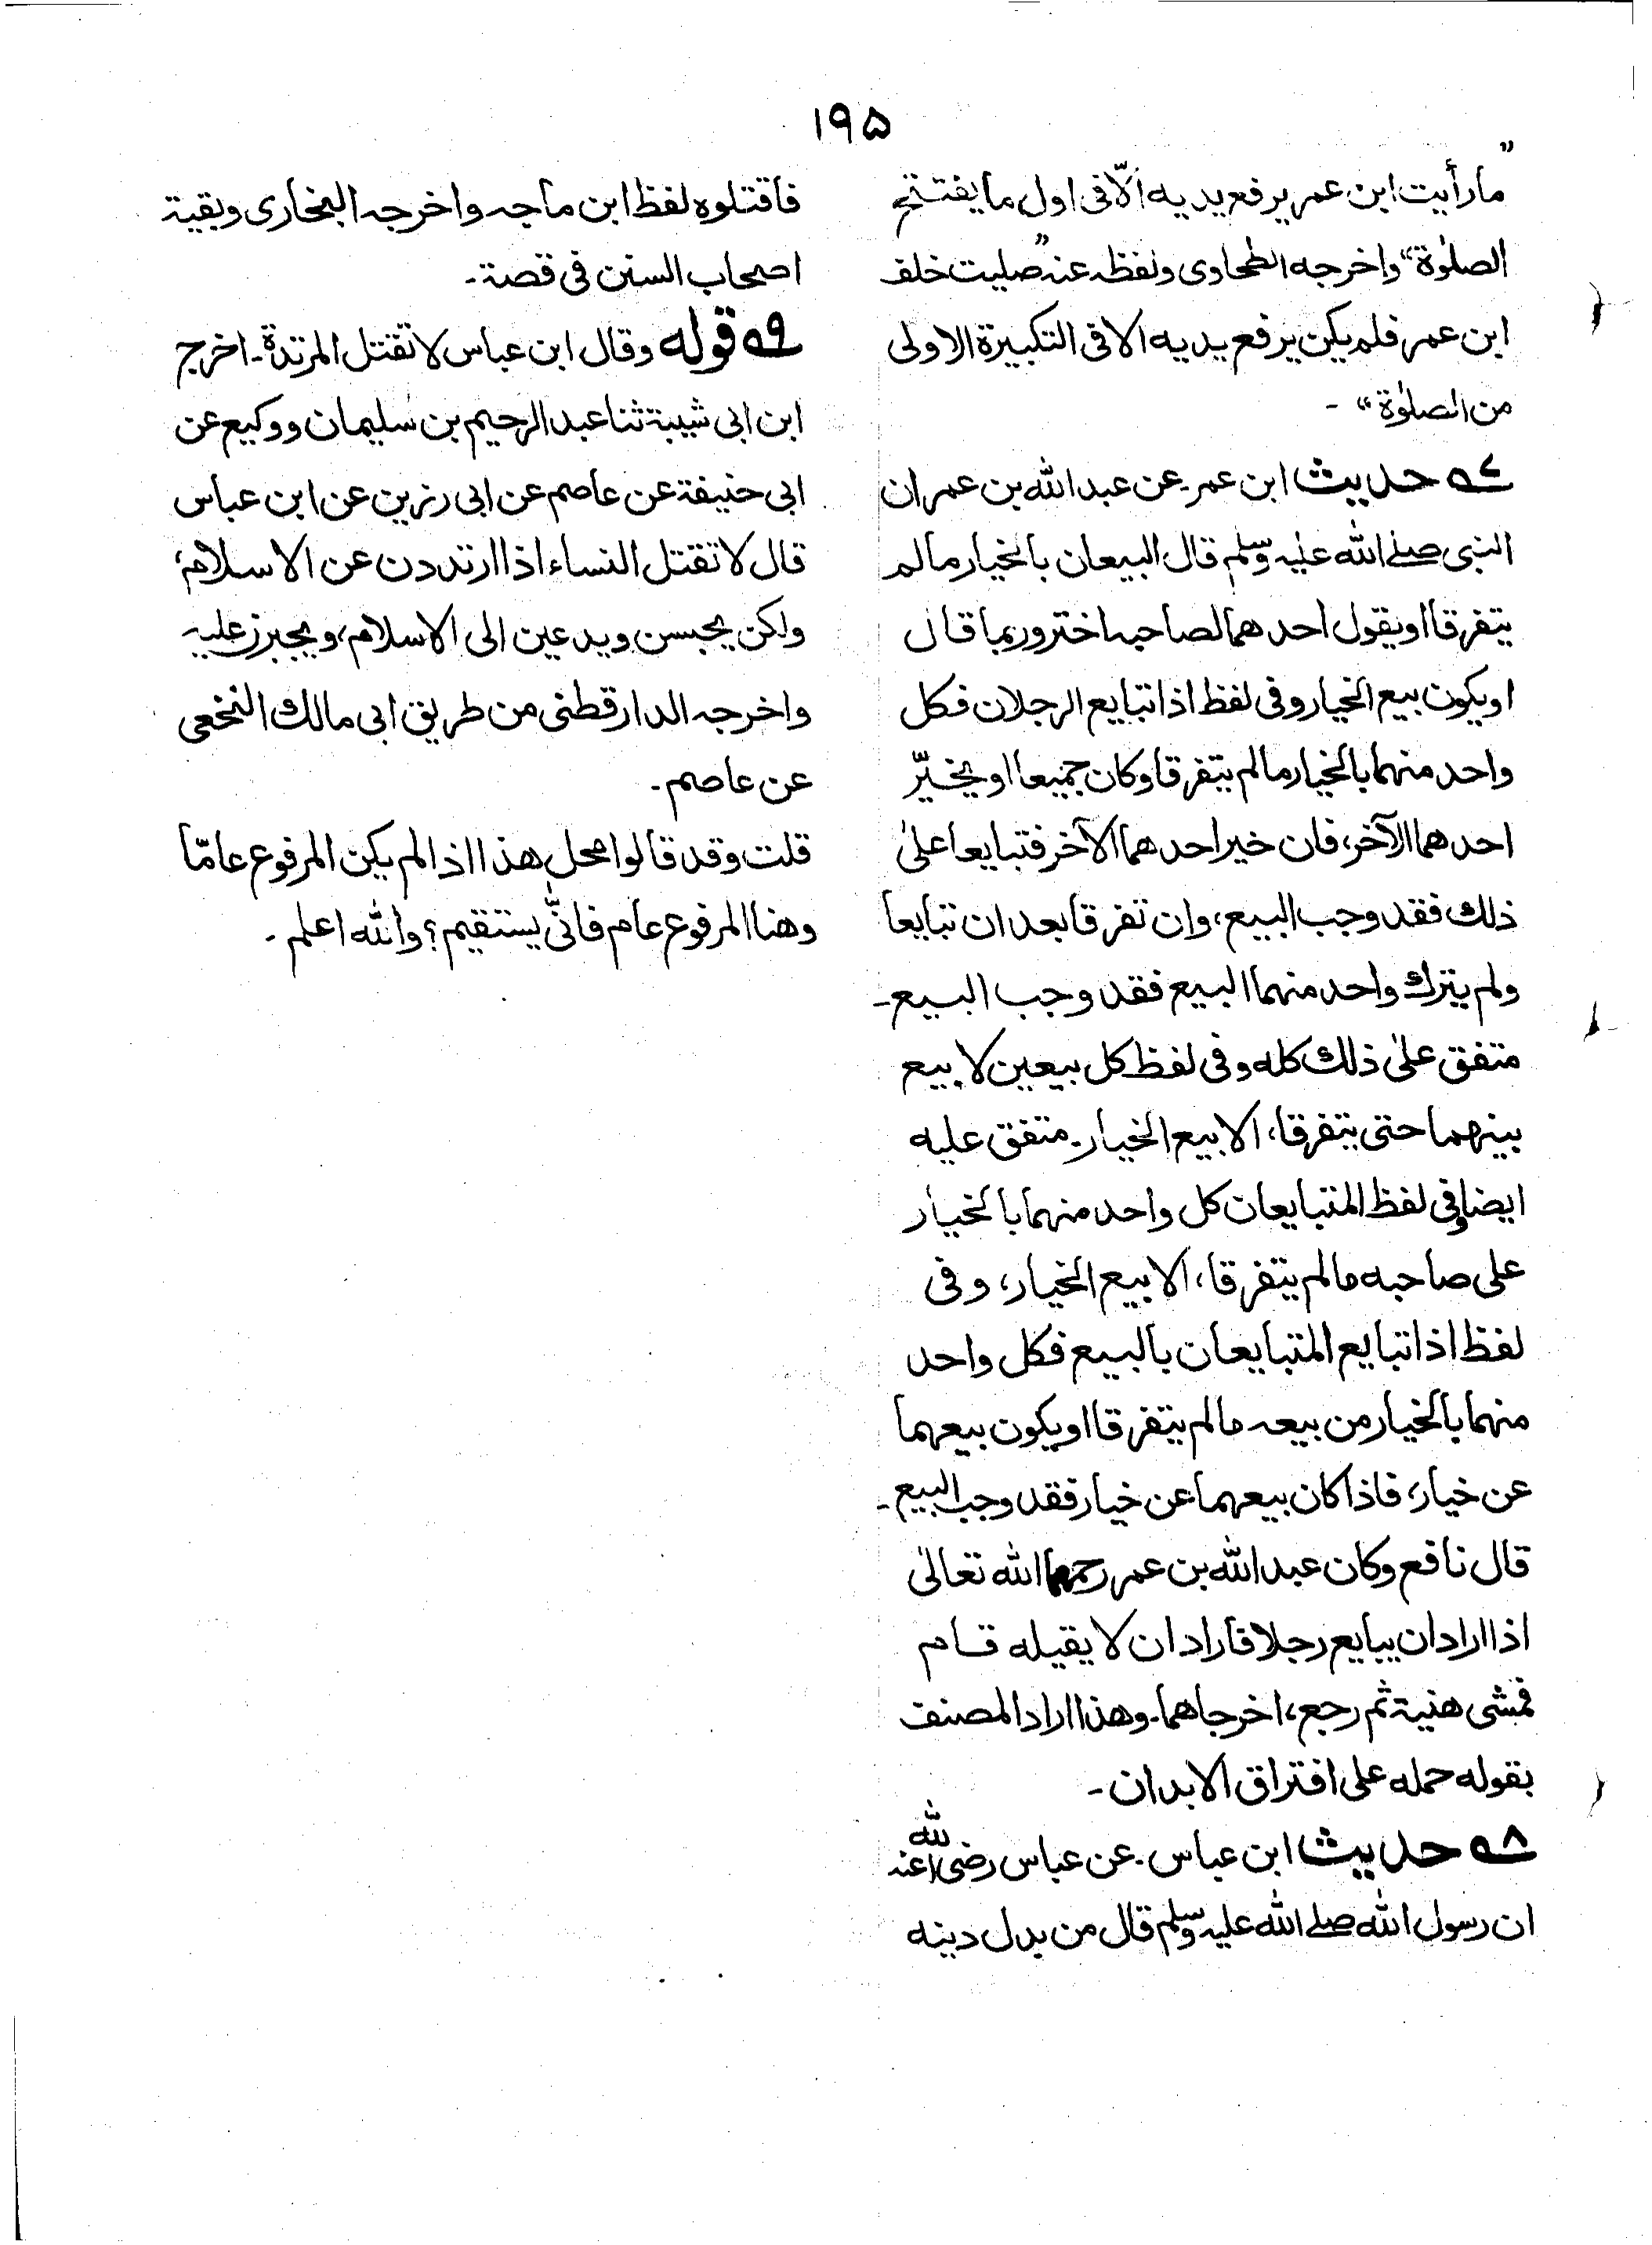 ۱۹۵
”ما رأیت ابن عمر یرفع یدیه الّا فی اول ما یفتتح
الصلٰوة“ واخرجه الطحاوی ولفظه عنه ”صلیت خلف
ابن عمر فلم یکن یرفع یدیه الا فی التکبیرة الاولی
من الصلٰوة“ ۔
۷ حدیث ابن عمر۔ عن عبد الله بن عمر ان
النبی صلے الله علیه وسلم قال البیعان بالخیار مالم
یتفرقا او یقول احدهما لصاحبه اختر وربما قال
او یکون بیع الخیار وفی لفظ اذا تبایع الرجلان فکل
واحد منهما بالخیار مالم یتفرقا وکان جمیعا او یخیّر
احدهما الآخر، فان خیر احدهما الآخر فتبایعا علیٰ
ذلك فقد وجب البیع، وان تفرقا بعد ان تبایعا
ولم یترك واحد منهما البیع فقد وجب البیع۔
متفق علیٰ ذلك کله وفی لفظ کل بیعین لا بیع
بینهما حتی یتفرقا، الا بیع الخیار۔ متفق علیه
ایضا وفی لفظ المتبایعان کل واحد منهما بالخیار
علی صاحبه مالم یتفرقا، الا بیع الخیار، وفی
لفظ اذا تبایع المتبایعان بالبیع فکل واحد
منهما بالخیار من بیعه مالم یتفرقا او یکون بیعهما
عن خیار، فاذا کان بیعهما عن خیار فقد وجب البیع۔
قال نافع وکان عبد الله بن عمر رحمهما الله تعالیٰ
اذا اراد ان یبایع رجلا فاراد ان لا یقیله قام
فمشی هنیة ثم رجع، اخرجاهما۔ وهذا اراد المصنف
بقوله حمله علی افتراق الابدان۔
۸ حدیث ابن عباس۔ عن عباس رضی الله عنه
ان رسول الله صلے الله علیه وسلم قال من بدل دینه
فاقتلوه لفظ ابن ماجه واخرجه البخاری وبقیة
اصحاب السنن فی قصة۔
۹ قوله وقال ابن عباس لا تقتل المرتدة۔ اخرج
ابن ابی شیبة ثنا عبد الرحیم بن سلیمان ووکیع عن
ابی حنیفة عن عاصم عن ابی رزین عن ابن عباس
قال لا تقتل النساء اذا ارتددن عن الاسلام،
ولکن یحبسن ویدعین الی الاسلام، ویجبرن علیه
واخرجه الدارقطنی من طریق ابی مالك النخعی
عن عاصم۔
قلت وقد قالوا محل هذا اذا لم یکن المرفوع عامّا
وهنا المرفوع عام فانّٰی یستقیم؟ والله اعلم۔